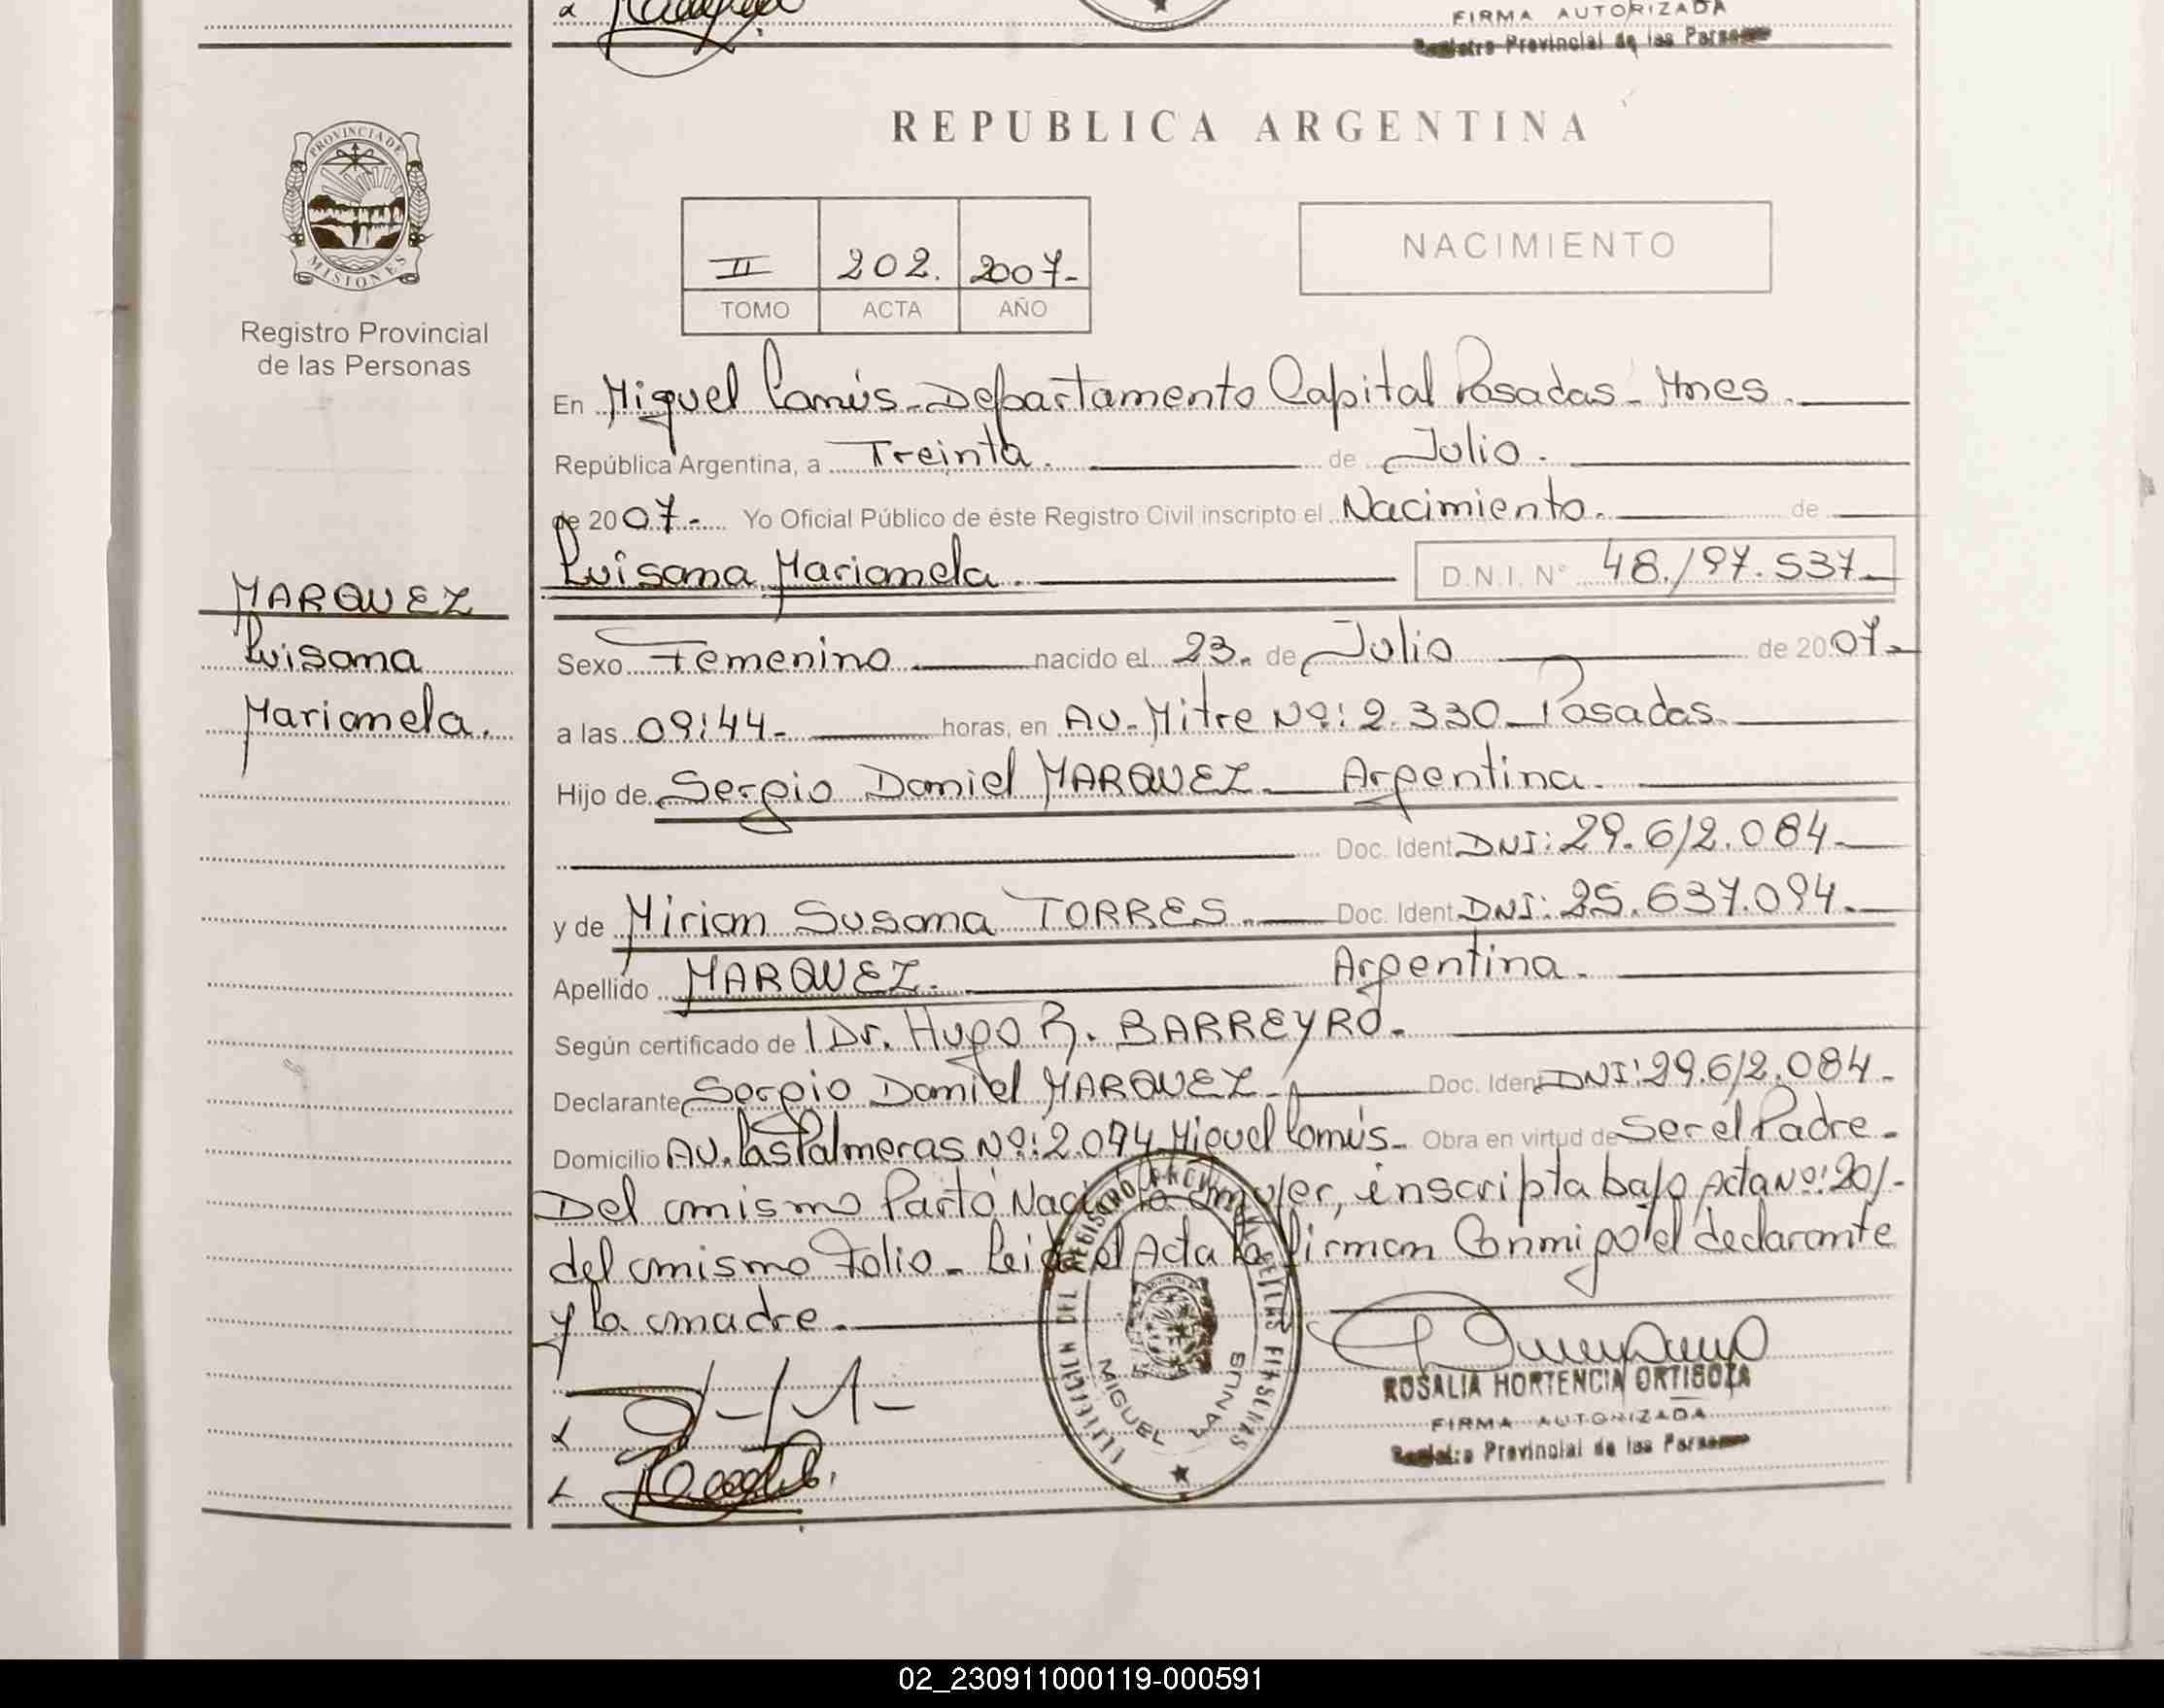 FIRMA AUTORIZADA
Registro Provincial de las Personas
PROVINCIA DE
MISIONES
Registro Provincial
de las Personas
REPUBLICA ARGENTINA
II 202. 2007-
TOMO ACTA AÑO
NACIMIENTO
En Miguel Lanús-Departamento Capital Posadas-Mnes.
República Argentina, a Treinta. de Julio.
de 2007- Yo Oficial Público de éste Registro Civil inscripto el Nacimiento. de
Luisana Marianela. D.N.I. N° 48.197.537-
MARQUEZ
Luisana
Marianela.
Sexo Femenino nacido el 23. de Julio de 2007-
a las 09:44- horas, en AV-Mitre Nº: 2.330-Posadas-
Hijo de Sergio Daniel MARQUEZ- Argentina.
Doc. Ident. DNI: 29.612.084-
y de Mirian Susana TORRES- Doc. Ident. DNI: 25.637.094.
Apellido MARQUEZ. Argentina-
Según certificado de l Dr. Hugo R. BARREYRO.
Declarante Sergio Daniel MARQUEZ- Doc. Ident. DNI: 29.612.084-
Domicilio AV. las Palmeras Nº: 2.094-Miguel Lanús- Obra en virtud de Ser el Padre-
Del mismo Parto Nació la mujer, inscripta bajo Acta Nº: 201-
del mismo Folio- Leida el Acta la firman Conmigo el declarante
y la madre.
MIGUEL LANUS
ROSALIA HORTENCIA ORTIGOZA
FIRMA AUTORIZADA
Registro Provincial de las Personas
02_230911000119-000591